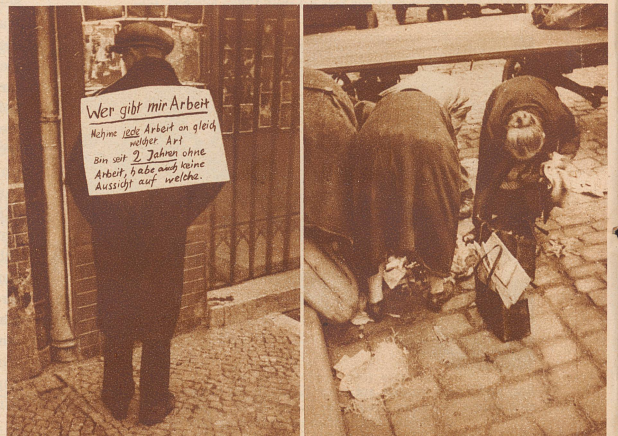 Wer gibt mir Arbeit
Nehme jede Arbeit an gleich
welcher Art
Bin seit 2 Jahren ohne
Arbeit, habe auch keine
Aussicht auf welche.